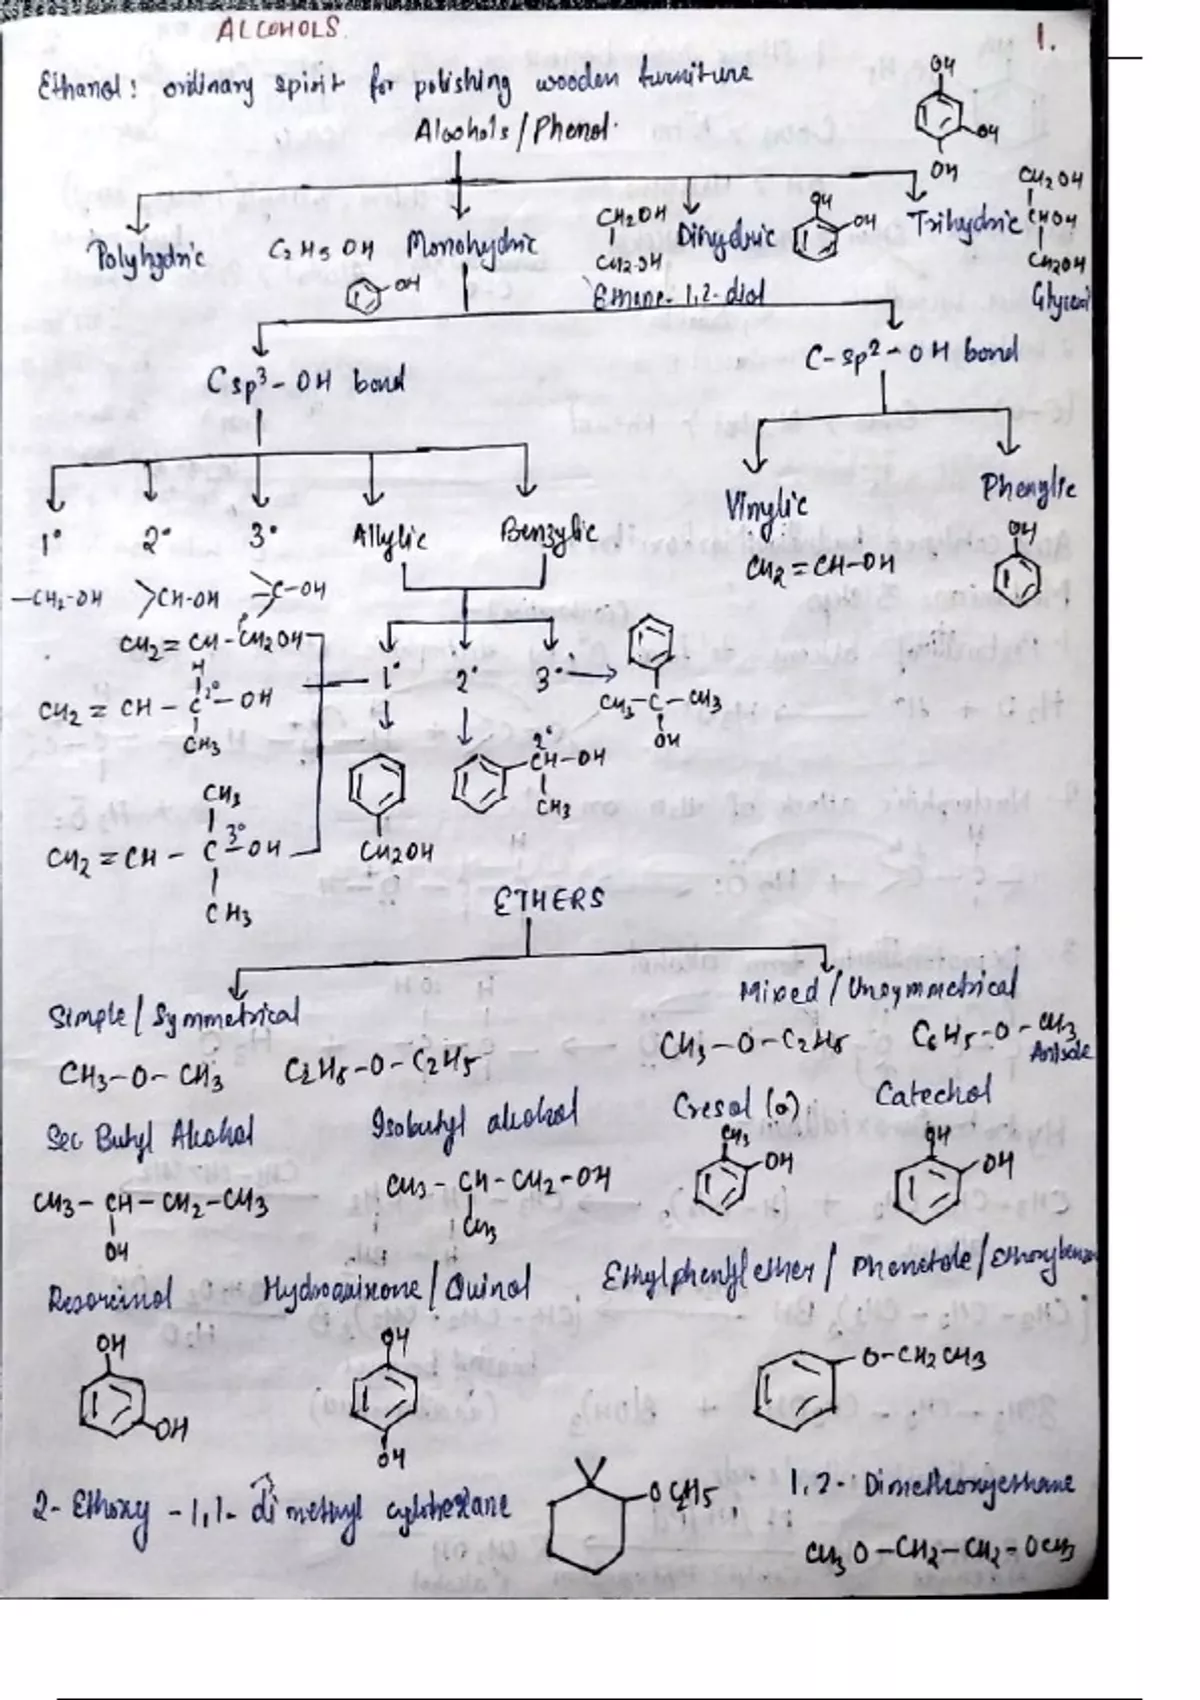 ALCOHOLS.
1.
Ethanol: ordinary spirit for polishing wooden furniture
Alcohols/Phenol.
OH
OH
OH
Polyhydric
C2H5OH
OH
Monohydric
CH2OH
CH2-OH
Ethane-1,2-diol
Dihydric
OH
OH
Trihydric
CH2OH
CHOH
CH2OH
Csp3-OH bond
C-sp2-OH bond
1° 2° 3° Allylic Benzylic
Vinylic
Phenylic
CH2=CH-OH
OH
-CH2-OH >CH-OH C-OH
CH2=CH-CH2OH
1° 2° 3°
CH3-C-CH3
OH
H
CH2=CH-C 2°-OH
CH3
2°
CH-OH
CH3
CH3
CH2=CH-C 3°-OH
CH3
CH2OH
ETHERS
Simple/Symmetrical
Mixed/Unsymmetrical
CH3-O-CH3 C2H5-O-C2H5
CH3-O-C2H5 C6H5-O-CH3
Anisole
Sec Butyl Alcohol
Isobutyl alcohol
Cresol (o)
Catechol
CH3
OH
OH
OH
CH3-CH-CH2-CH3
OH
CH3-CH-CH2-OH
CH3
Resorcinol
Hydroquinone/Quinol
Ethylphenyl ether/Phenetole/
OH
OH
OH
OH
O-CH2CH3
2-Ethoxy-1,1-dimethyl cyclohexane
OC2H5
1,2-Dimethoxyethane
CH3O-CH2-CH2-OCH3